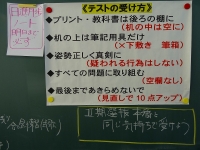 《テストの受け方》
◆プリント・教科書は後ろの棚に
(机の中は空に)
◆机の上は筆記用具だけ
(×下敷き 筆箱)
◆姿勢正しく真剣に
(疑われる行為はしない)
◆すべての問題に取り組む
(空欄なし)
◆最後まであきらめないで
(見直しで10点アップ)
同じ気持ちで受けよう